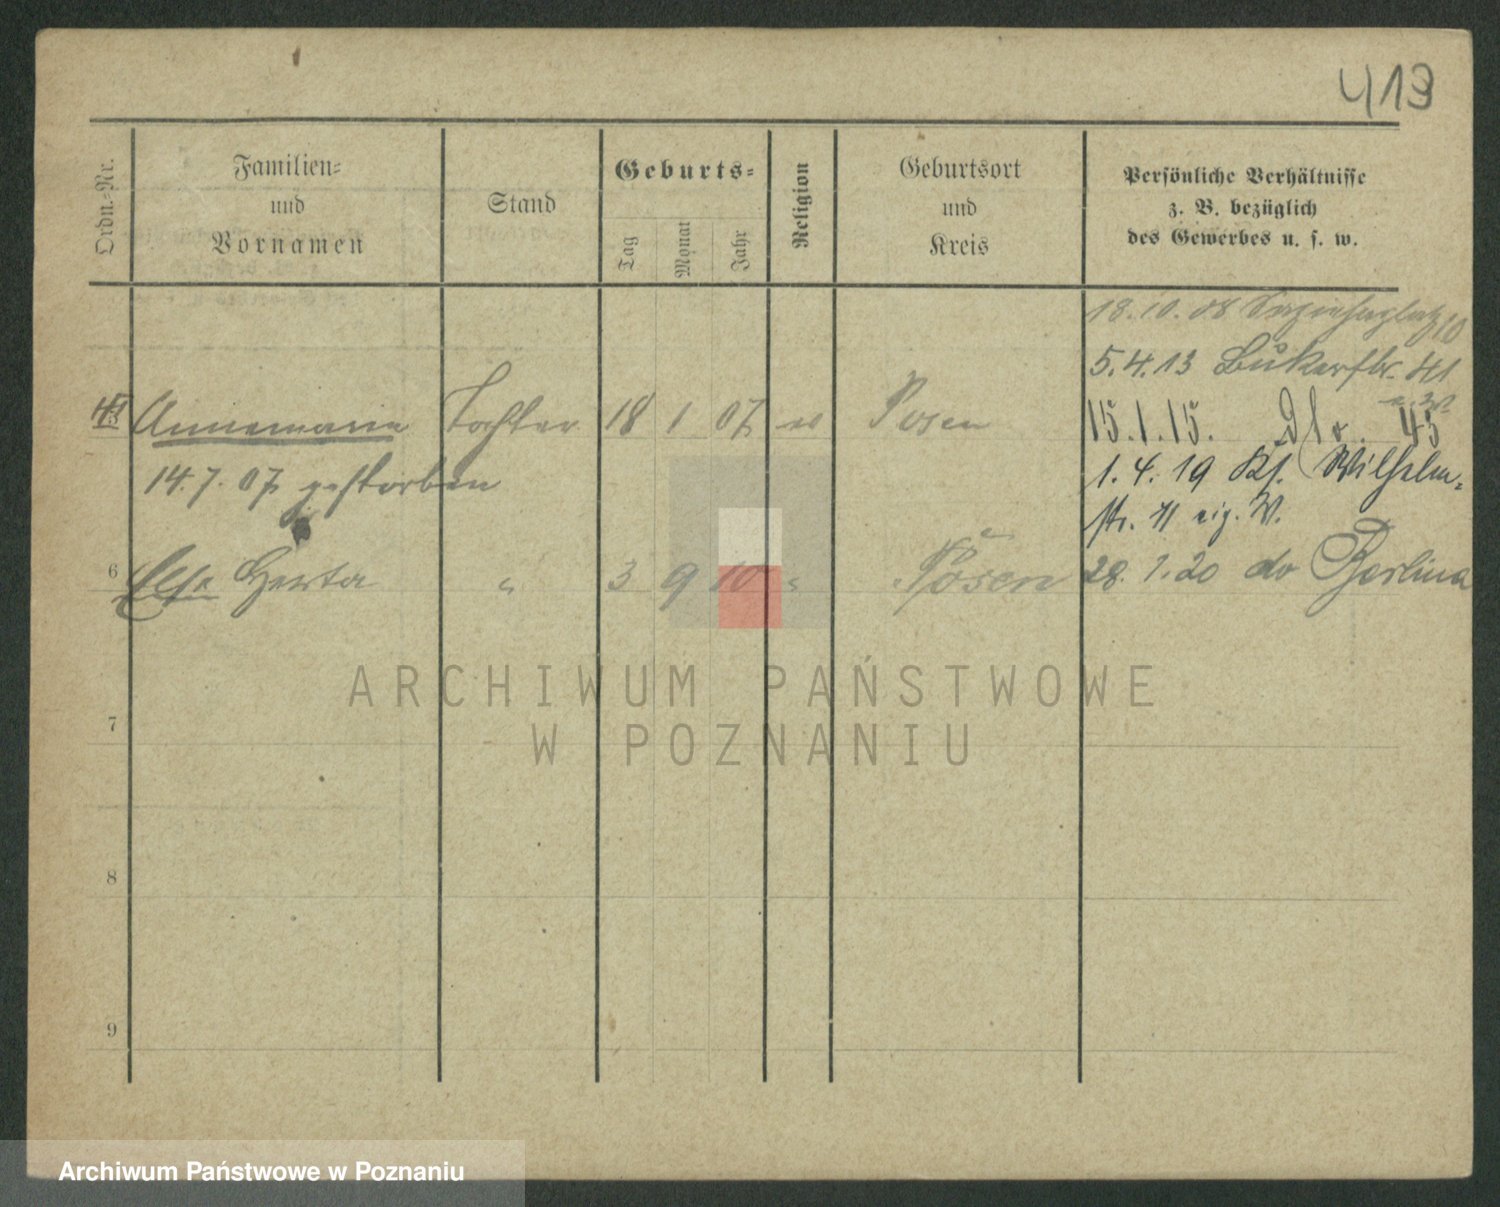 413
Ordn.-Nr.
Familien=
und
Vornamen
Stand
Geburts=
Tag
Monat
Jahr
Religion
Geburtsort
und
Kreis
Persönliche Verhältnisse
z. B. bezüglich
des Gewerbes u. s. w.
18.10.08
5.4.13 Bukerstr. 41
Annemarie Tochter 18 1 07 Posen
15.1.15. 45
14.7.07 gestorben
1.4.19 Wilhelm=
str. 11 eig. W.
6 Else Herta " 3 9 10 " Posen
28.1.20 do Berlina
7
8
9
ARCHIWUM PAŃSTWOWE
W POZNANIU
Archiwum Państwowe w Poznaniu